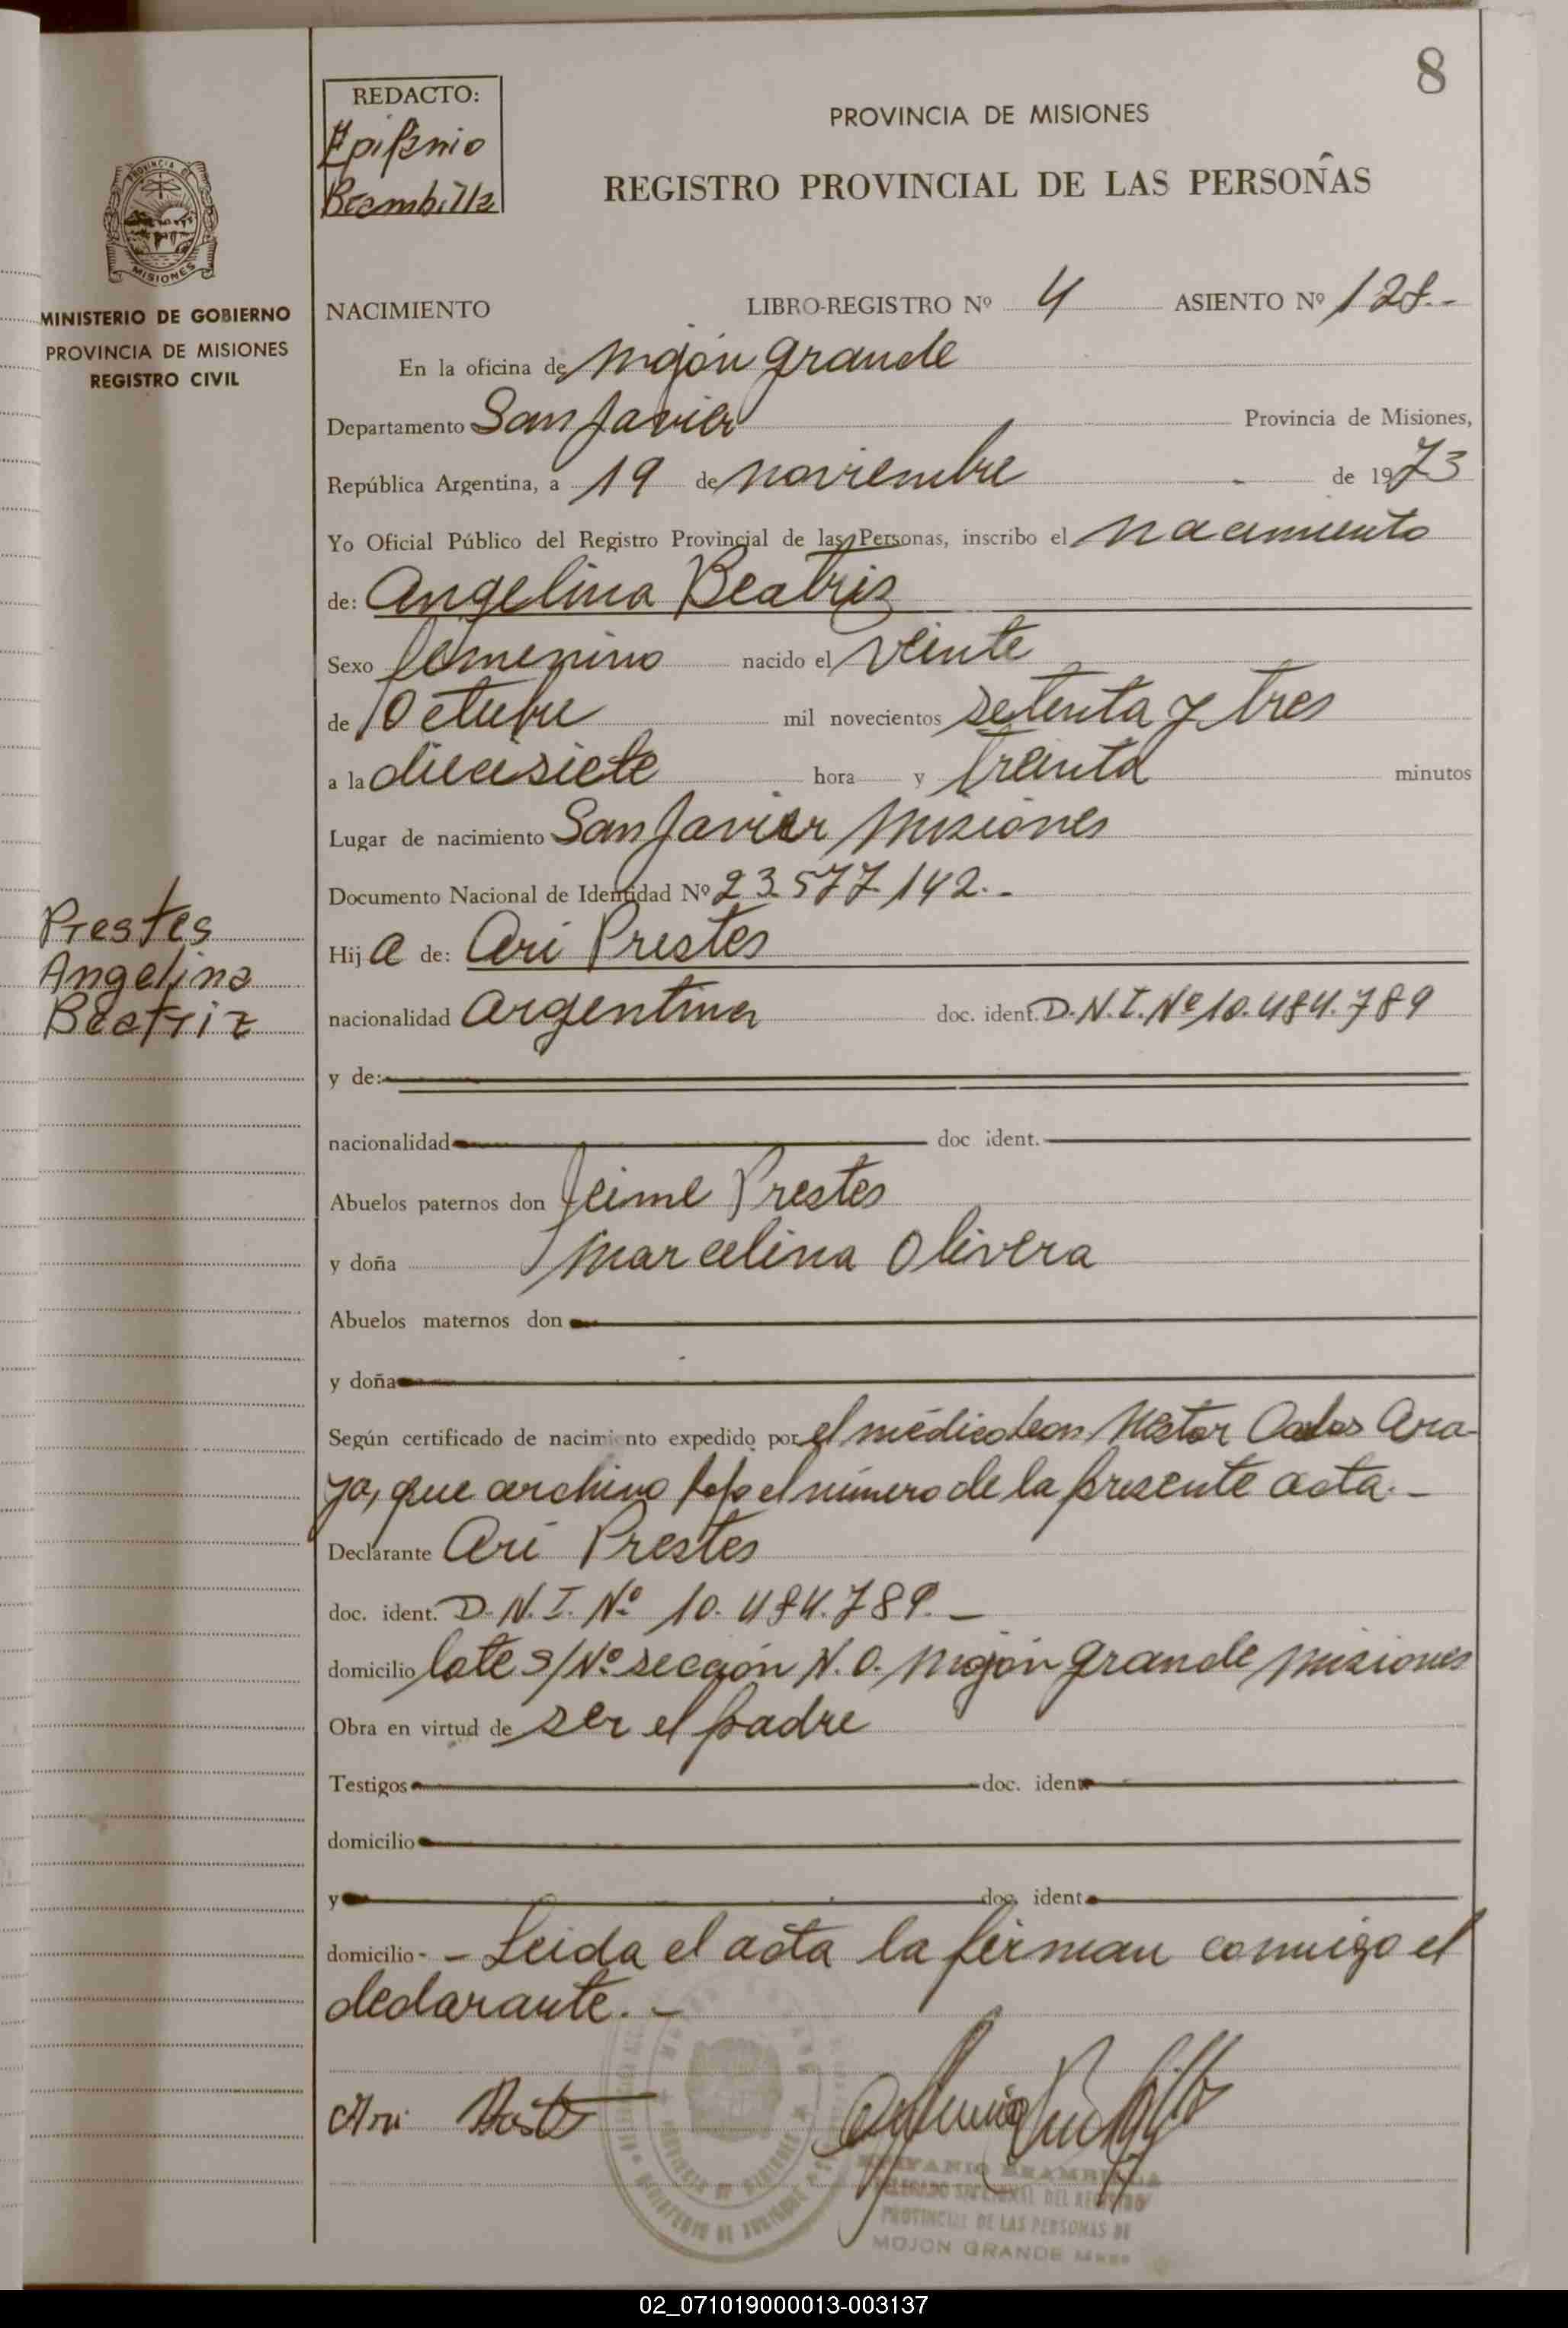 8
REDACTO:
Epifanio
Brambilla
PROVINCIA DE MISIONES
REGISTRO PROVINCIAL DE LAS PERSONAS
PROVINCIA DE
MISIONES
MINISTERIO DE GOBIERNO
PROVINCIA DE MISIONES
REGISTRO CIVIL
NACIMIENTO LIBRO-REGISTRO Nº 4 ASIENTO Nº 128.-
En la oficina de Mojón Grande
Departamento San Javier Provincia de Misiones,
República Argentina, a 19 de noviembre de 1973
Yo Oficial Público del Registro Provincial de las Personas, inscribo el nacimiento
de: Angelina Beatriz
Sexo femenino nacido el veinte
de Octubre mil novecientos setenta y tres
a la diecisiete hora y treinta minutos
Lugar de nacimiento San Javier Misiones
Documento Nacional de Identidad Nº 23.577.142.-
Prestes
Angelina
Beatriz
Hija de: Ari Prestes
nacionalidad argentina doc. ident. D.N.I. Nº 10.484.789
y de:
nacionalidad doc ident.
Abuelos paternos don Jeime Prestes
y doña Marcelina Olivera
Abuelos maternos don
y doña
Según certificado de nacimiento expedido por el médico León Néstor Carlos Ara-
ya, que archivo bajo el número de la presente acta.-
Declarante Ari Prestes
doc. ident. D.N.I. Nº 10.484.789.-
domicilio lote s/Nº sección N.O. Mojón Grande Misiones
Obra en virtud de ser el padre
Testigos doc. ident
domicilio
y doc. ident
domicilio - - Leida el acta la firman conmigo el
declarante.-
Ari
EPIFANIO BRAMBILLA
DELEGADO SECCIONAL DEL REGISTRO
PROVINCIAL DE LAS PERSONAS DE
MOJON GRANDE Mnes
02_071019000013-003137